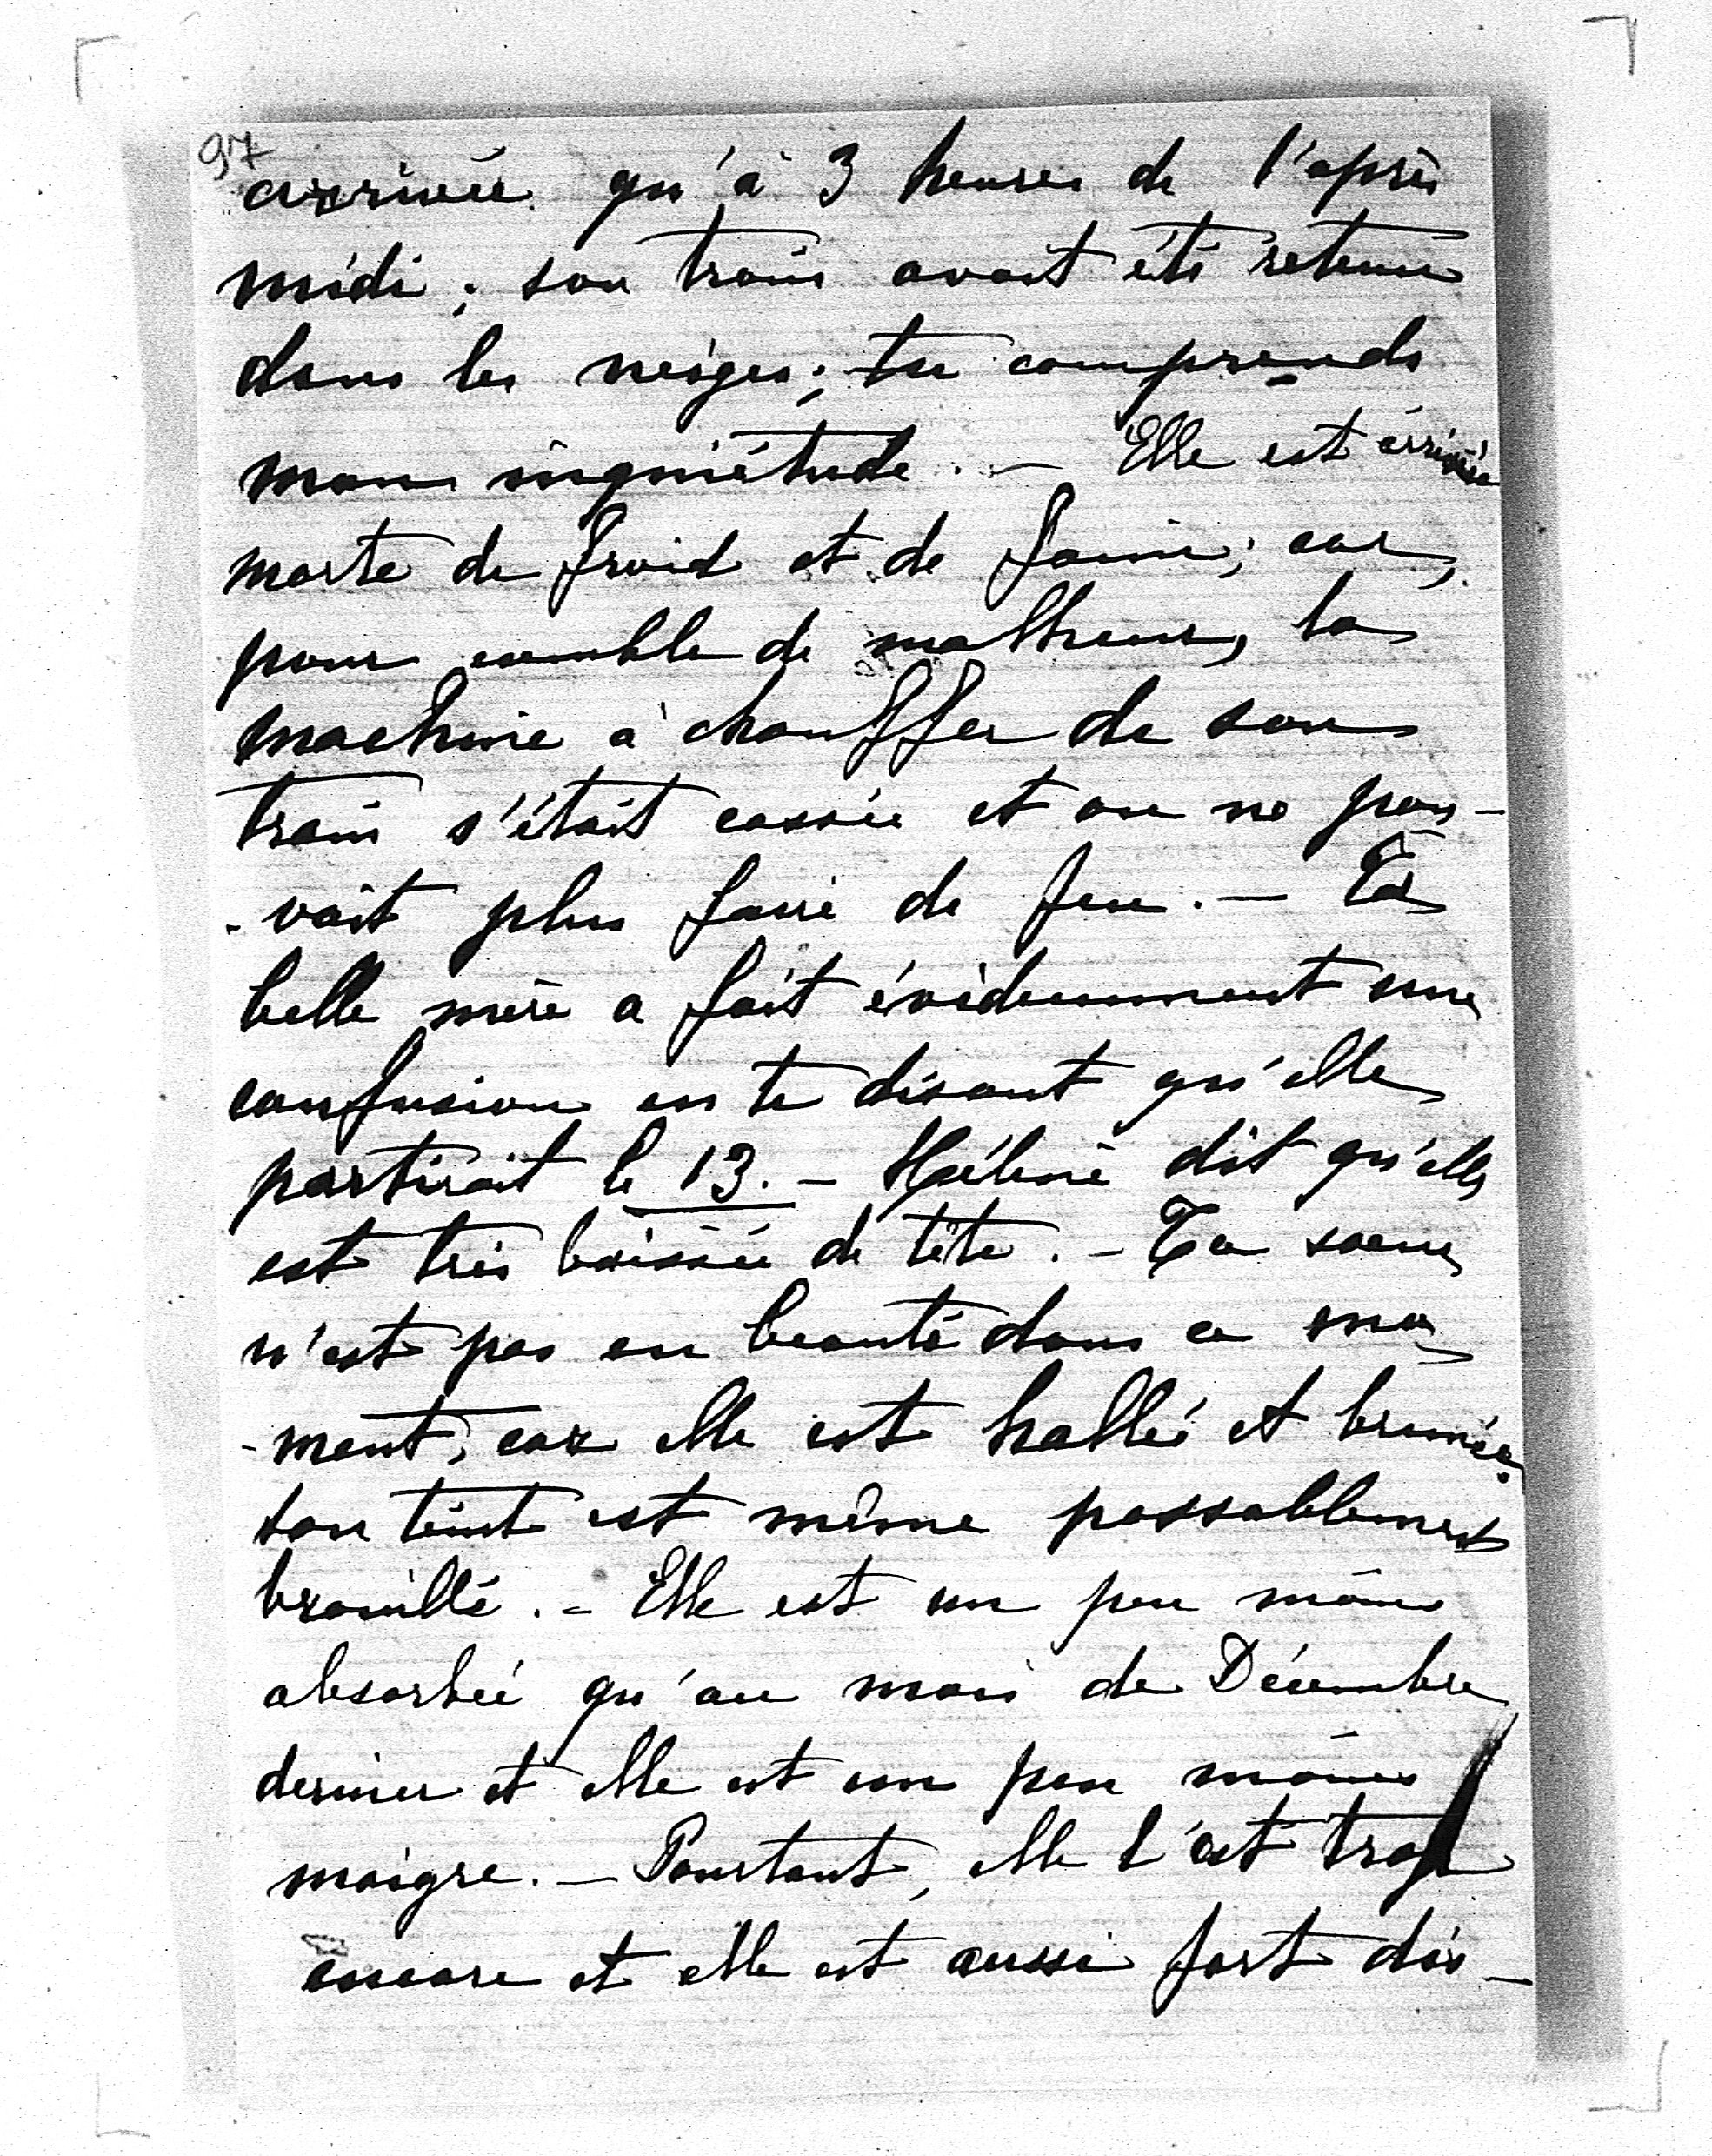 97
arrivée qu'à 3 heures de l'après
midi ; son train avait été retenu
dans les neiges ; tu comprends
mon inquiétude. — Elle est arrivée
morte de froid et de faim ; car,
pour comble de malheur, la
machine à chauffer de son
train s'était cassée et on ne pou-
-vait plus faire de feu. — Ta
belle mère a fait évidemment une
confusion en te disant qu'elle
partirait le 13. — Hélène dit qu'elle
est très baissée de tête. — Ta soeur
n'est pas en beauté dans ce mo
-ment, car elle est hallée et brunie.
son teint est même passablement
brouillé. — Elle est un peu moins
absorbée qu'au mois de Décembre
dernier et elle est un peu moins
maigre. — Pourtant, elle l'est trop
encore et elle est aussi fort dis-